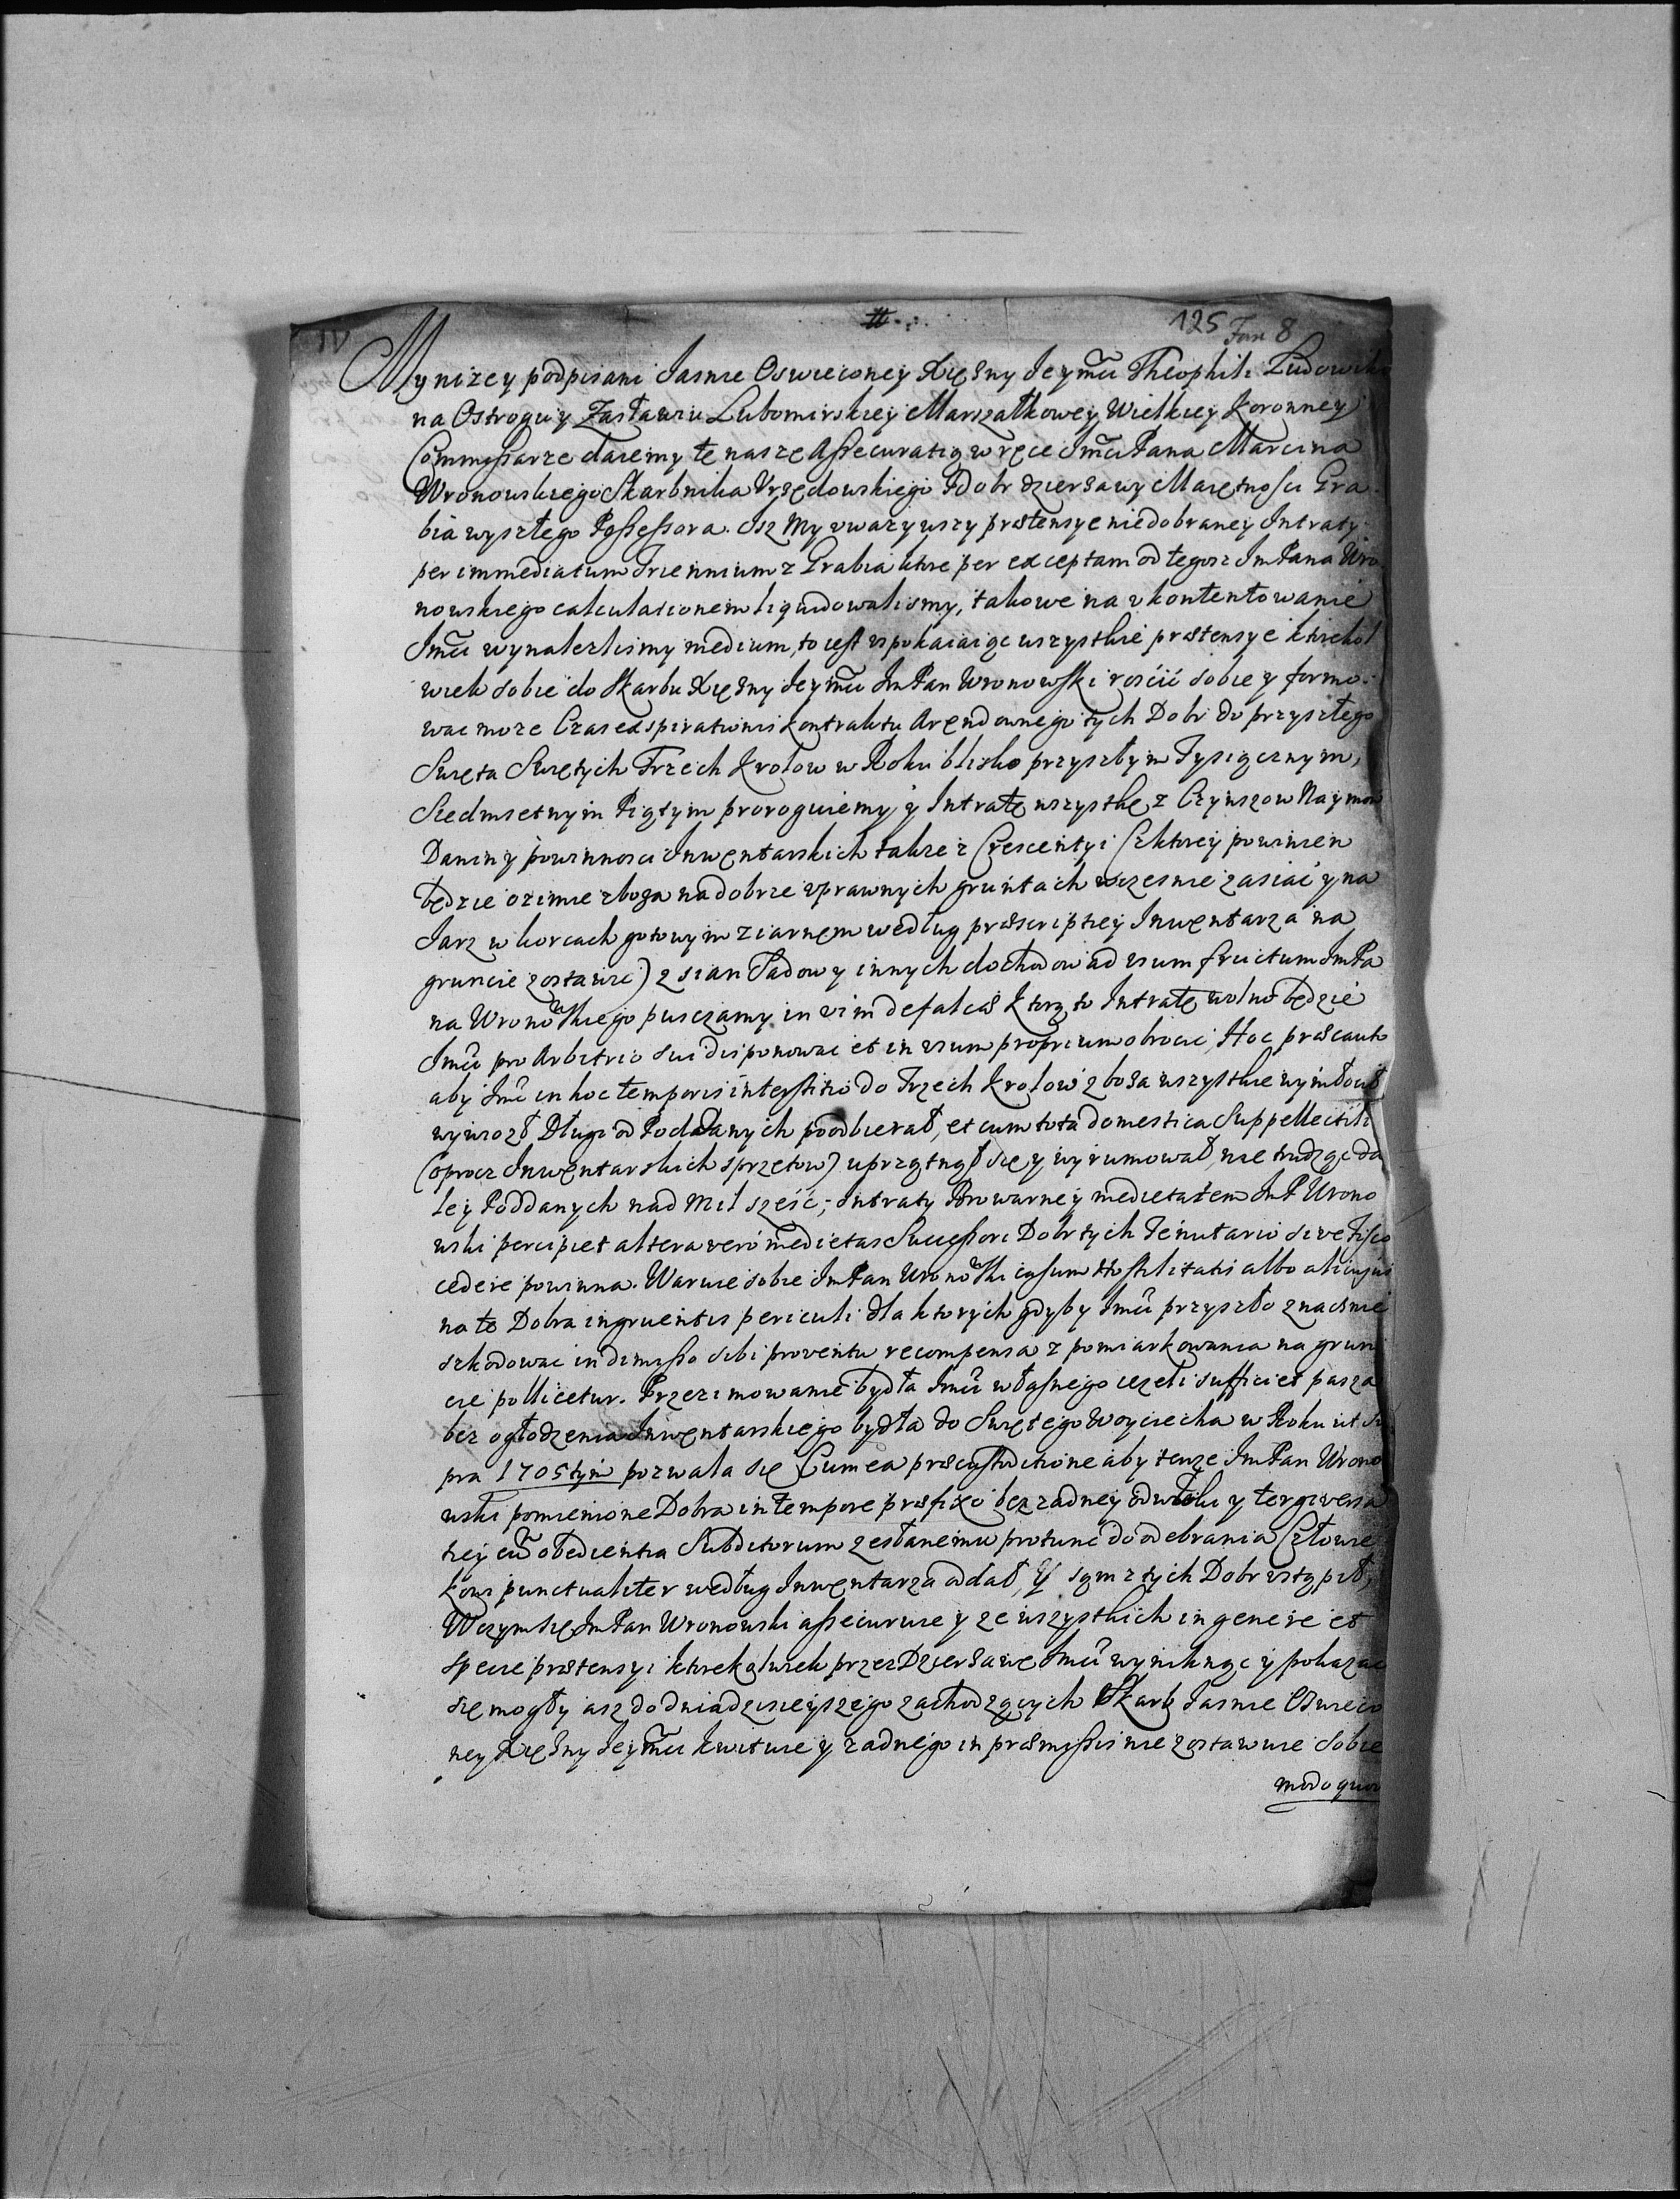 IV
#
125 Fan 8
My nizey podpisani Jasnie Oswieconey Xiężny Jeymci Theophili Ludowiki
na Ostrogu y Zasławiu Lubomirskiey Marszałkowey Wielkiey Koronney
Commissarze daiemy tę naszę Assecuratią w ręce Jmci Pana Marcina
Wronowskiego Skarbnika Vrzędowskiego Dobr dzierżawy Maiętnosci Gra
bia wyszłego Possessora. Isz My vważywszy prætensye niedobraney Intraty
per immediatum Triennium z Grabia ktore per exceptam od tegosz Jm Pana Wro
nowskiego calculationem liquidowalismy, takowe na vkontentowanie
Jmci wynalezlismy medium, to iest vspokaiaiąc wszystkie prætensye ktorekol
wiek sobie do Skarbu Xiężny Jeymci Jm Pan Wronowski rościć sobie y formo
wac może Czas exspirationis kontraktu Arendownego tych Dobr do przyszłego
Swięta Swiętych Trzech Krolow w Roku blisko przyszłym Tysiącznym,
Siedmsetnym Piątym proroguiemy y Intratę wszystkę z Czynszow Naymow
Danin y powinnosci Inwentarskich także z Crescentyi (z ktorey powinien
będzie ozimie zboża na dobrze vprawnych gruntach wczesnie zasiać y na
Jarz w korcach gotowym ziarnem według præscriptiey Inwentarza na
gruncie zostawic) z sian Sadow y innych dochodow ad usum fructum Jm Pa
na Wronowskiego pusczamy in vim defalcæ ktorą to Intratę wolno będzie
Jmci pro Arbitrio sui disponowac et in usum proprium obrocic, Hoc præcauto
aby Jmc in hoc temporis interstitio do Trzech Krolow zboża wszystkie wymłocił
wywiozł, Długi od Poddanych poodbierał, et cum tota domestica Suppellectili
(oprocz Inwentarskich sprzętow) uprzątnął się y wyrumował, nie trudząc da
ley Poddanych nad mil szesć, Intraty Browarney medietatem Jm P Wrono
wski percipiet altera vero medietas Successori Dobr tych Tenutario sive Fisco
cedere powinna. Waruie sobie Jm Pan Wronowski casum Hostilitatis albo alicujus
na te Dobra ingruentis periculi dla ktorych gdyby Jmci przyszło znacznie
szkodowac in dimisso sibi proventu recompensa z pomiarkowania na grun
cie pollicetur. Przezimowanie bydła Jmci własnego iezeli sufficiet pasza
bez ogłodzenia Inwentarskiego bydła do Swiętego Woyciecha w Roku ut su
pra 1705tym pozwala się Cum ea præcustoditione aby tenze Jm Pan Wrono
wski pomienione Dobra in tempore præfixo bez zadney odwłoki y tergiversa
tiey cum obedientia Subditorum zesłanemu protunc do odebrania Człowie
kowi punctualiter według Inwentarza oddał, y sam z tych Dobr vstąpił,
W czym się Jm Pan Wronowski assecuruie y ze wszystkich in genere et
specie prætensyi ktorekolwiek przez Dzierżawę Jmci wyniknąc y pokazac
się mogły asz do dnia dzisieyszego zachodzących Skarb Jasnie Oswieco
ney Xiężny Jeymci kwituie y żadnego in præmissis nie zostawuie sobie
modo quo